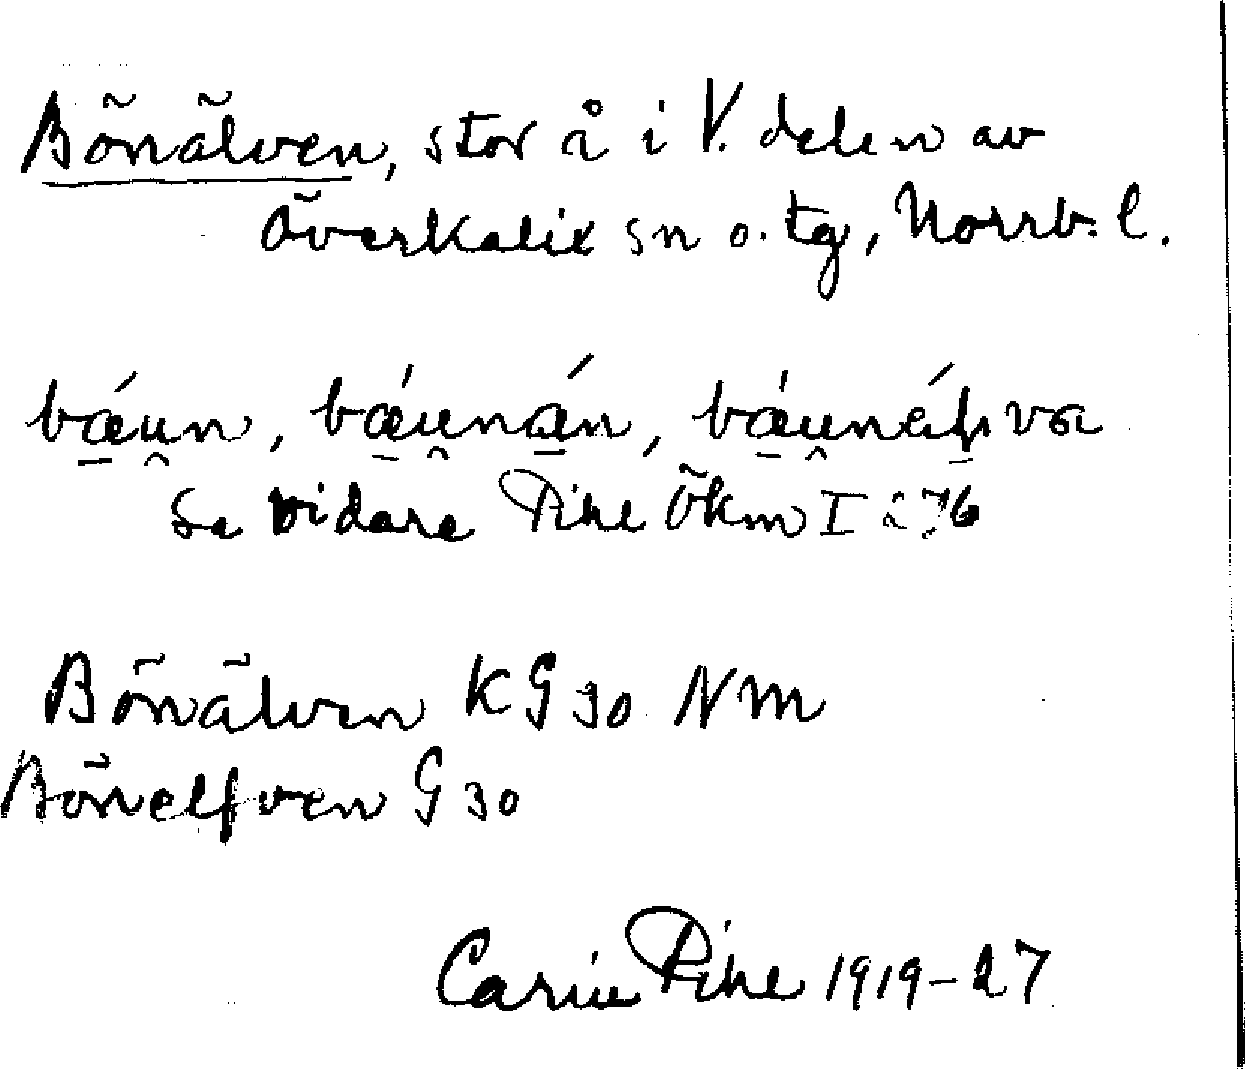 Bönälven, stor å i V. delen av
Överkalix sn o. tg, Norrb. l.
bǽu̯n, bǽu̯nán,
Se vidare Pihl Ökm I 276
Bönälven K G 30 NM
Bönelfven G 30
Carin Pihl 1919-27